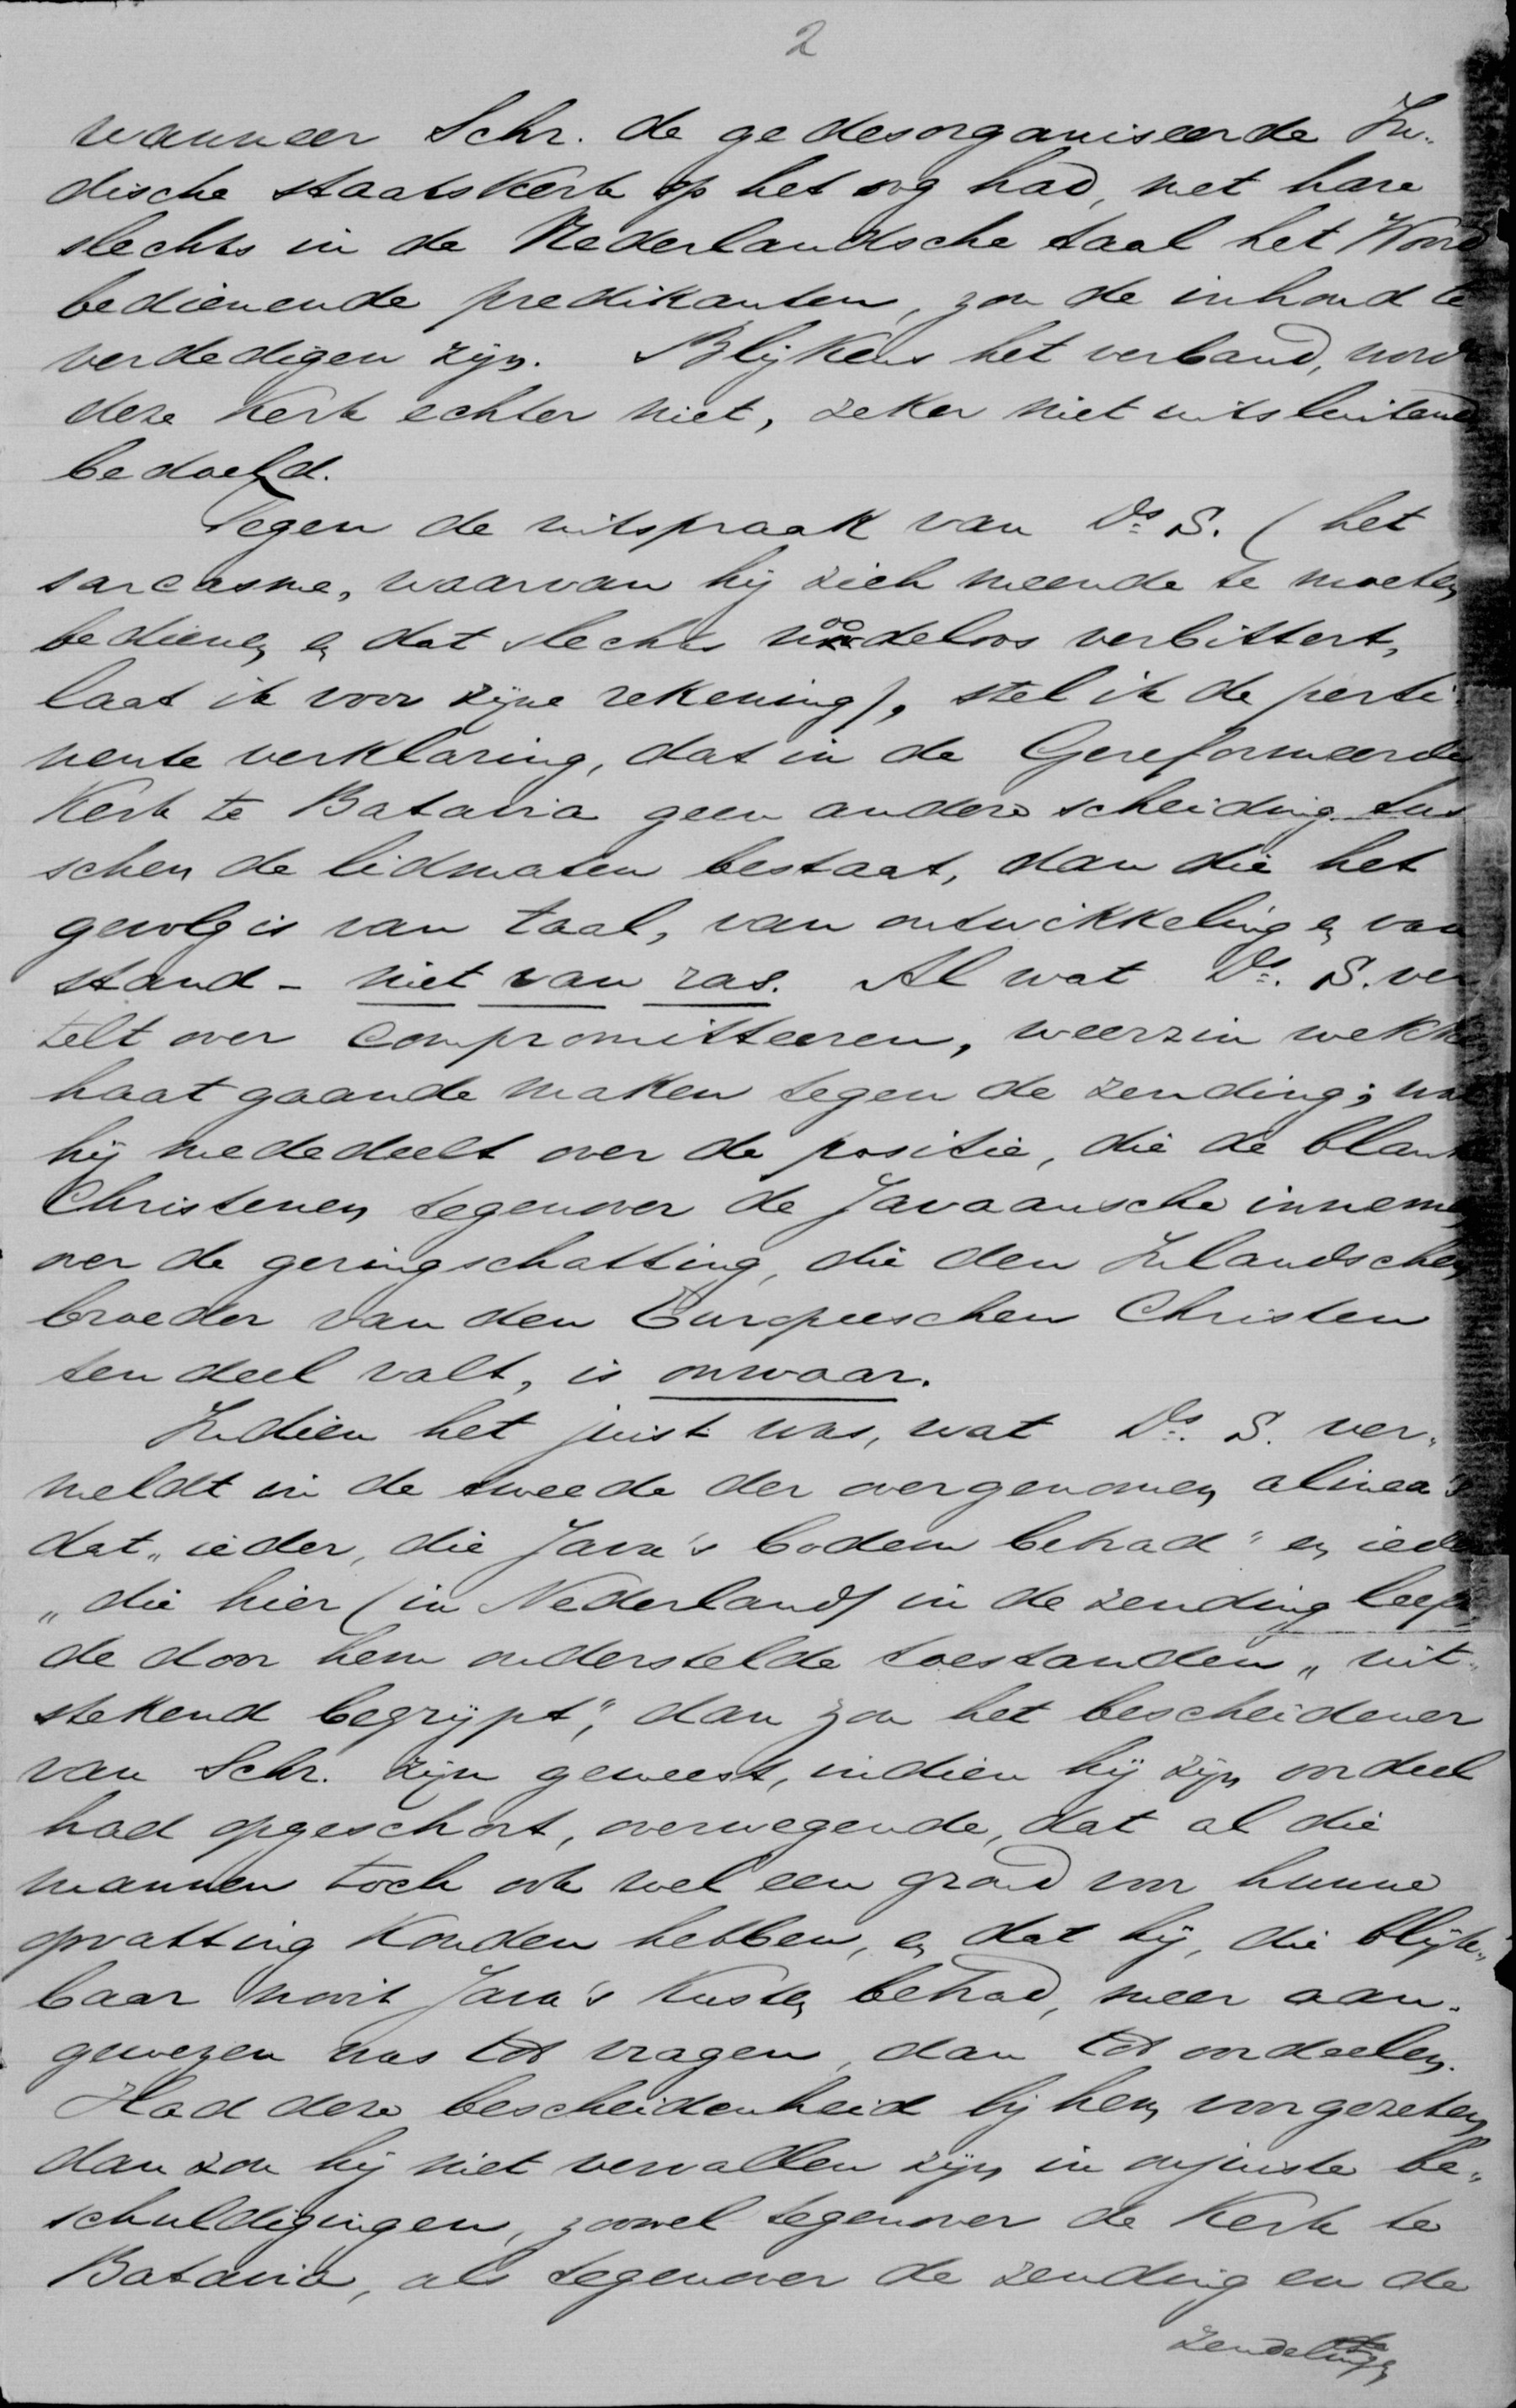 2
wanneer Schr. de gedesorganiseerde In-
dische staatskerk op het oog had, met hare
slechts in de Nederlandsche taal het Woord
bedienende predikanten, zou de inhoud te
verdedigen zijn. Blijkens het verband, wordt
deze Kerk echter niet, zeker niet uitsluitend
bedoeld.
Tegen de uitspraak van Ds. S. (het
sarcasme, waarvan hij zich meende te moeten
bedienen en dat slechts noodeloos verbittert,
laat ik voor zijne rekening), stel ik de perti-
nente verklaring, dat in de Gereformeerde
Kerk te Batavia geen andere scheiding tus
schen de lidmaten bestaat, dan die het
gevolg is van taal, van ontwikkeling en van
stand - niet van ras. Al wat Ds. S. ver
telt over compromitteeren, weerzin wekken
haat gaande maken tegen de zending; wat
hij mededeelt over de positie, die de blanke
Christenen tegenover de Javaansche innemen
over de geringschatting, die den Inlandschen
broeder van den Europeeschen Christen
ten deel valt, is onwaar.
Indien het juist was, wat Ds. S. ver-
meldt in de tweede der overgenomen alinea's
dat "ieder, die Java's bodem betrad" en ieder
"die hier (in Nederland) in de zending leeft,
de door hem onderstelde toestanden "uit-
stekend begrijpt", dan zou het bescheidener
van Schr. zijn geweest, indien hij zijn oordeel
had opgeschort, overwegende, dat al die
mannen toch ook wel een grond voor hunne
opvatting konden hebben, en dat hij, die blijk-
baar nooit Java's kusten betrad, meer aan-
gewezen was tot vragen, dan tot oordeelen.
Had deze bescheidenheid bij hem voorgezeten,
dan zou hij niet vervallen zijn in onjuiste be-
schuldigingen, zoowel tegenover de Kerk te
Batavia, als tegenover de zending en de
zendelingen